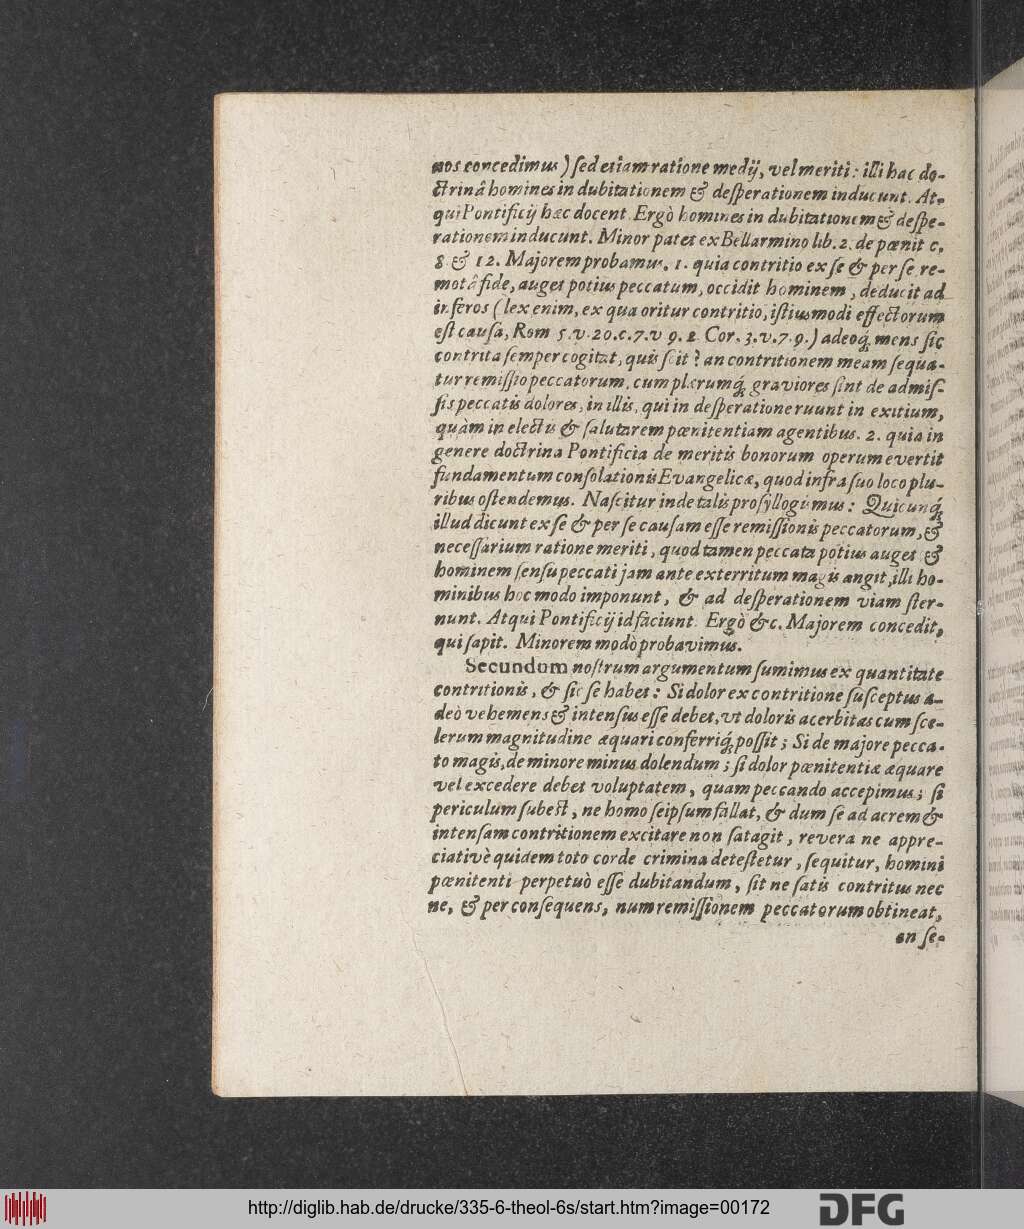 nos concedimus) ſed etiam ratione medij, vel meriti: illi hac do-
ctrinâ homines in dubitationem & deſperationem inducunt. At-
qui Pontificij hæc docent. Ergò homines in dubitationem & deſpe-
rationem inducunt. Minor patet ex Bellarmino lib. 2. de pœnit c.
8 & 12. Majorem probamus. 1. quia contritio ex ſe & per ſe re-
motâ fide, auget potius peccatum, occidit hominem, deducit ad
inferos (lex enim, ex qua oritur contritio, iſtiusmodi effectorum
eſt cauſa, Rom 5.v.20.c.7.v 9. 2 Cor. 3.v.7.9.) adeoq́; mens ſic
contrita ſemper cogitat, quis ſcit? an contritionem meam ſequa-
tur remiſſio peccatorum, cum plærumq́; graviores ſint de admiſ-
ſis peccatis dolores, in illis, qui in deſperatione ruunt in exitium,
quàm in electis & ſalutarem pœnitentiam agentibus. 2. quia in
genere doctrina Pontificia de meritis bonorum operum evertit
fundamentum conſolationis Evangelicæ, quod infra ſuo loco plu-
ribus oſtendemus. Naſcitur inde talis proſyllogiſmus: Quicunq́;
illud dicunt ex ſe & per ſe cauſam eſſe remiſſionis peccatorum, &
neceſſarium ratione meriti, quod tamen peccata potius auget &
hominem ſenſu peccati jam ante exterritum magis angit, illi ho-
minibus hoc modo imponunt, & ad deſperationem viam ſter-
nunt. Atqui Pontificij id faciunt. Ergò &c. Majorem concedit,
qui ſapit. Minorem modò probavimus.
Secundum noſtrum argumentum ſumimus ex quantitate
contritionis, & ſic ſe habet: Si dolor ex contritione ſuſceptus a-
deò vehemens & intenſus eſſe debet, ut doloris acerbitas cum ſce-
lerum magnitudine æquari conferriq́; poſſit; Si de majore pecca-
to magis, de minore minus dolendum; ſi dolor pœnitentiæ æquare
vel excedere debet voluptatem, quam peccando accepimus; ſi
periculum ſubeſt, ne homo ſeipſum fallat, & dum ſe ad acrem &
intenſam contritionem excitare non ſatagit, revera ne appre-
ciativè quidem toto corde crimina deteſtetur, ſequitur, homini
pœnitenti perpetuò eſſe dubitandum, ſit ne ſatis contritus nec
ne, & per conſequens, num remiſſionem peccatorum obtineat,
an ſe-
http://diglib.hab.de/drucke/335-6-theol-6s/start.htm?image=00172
DFG